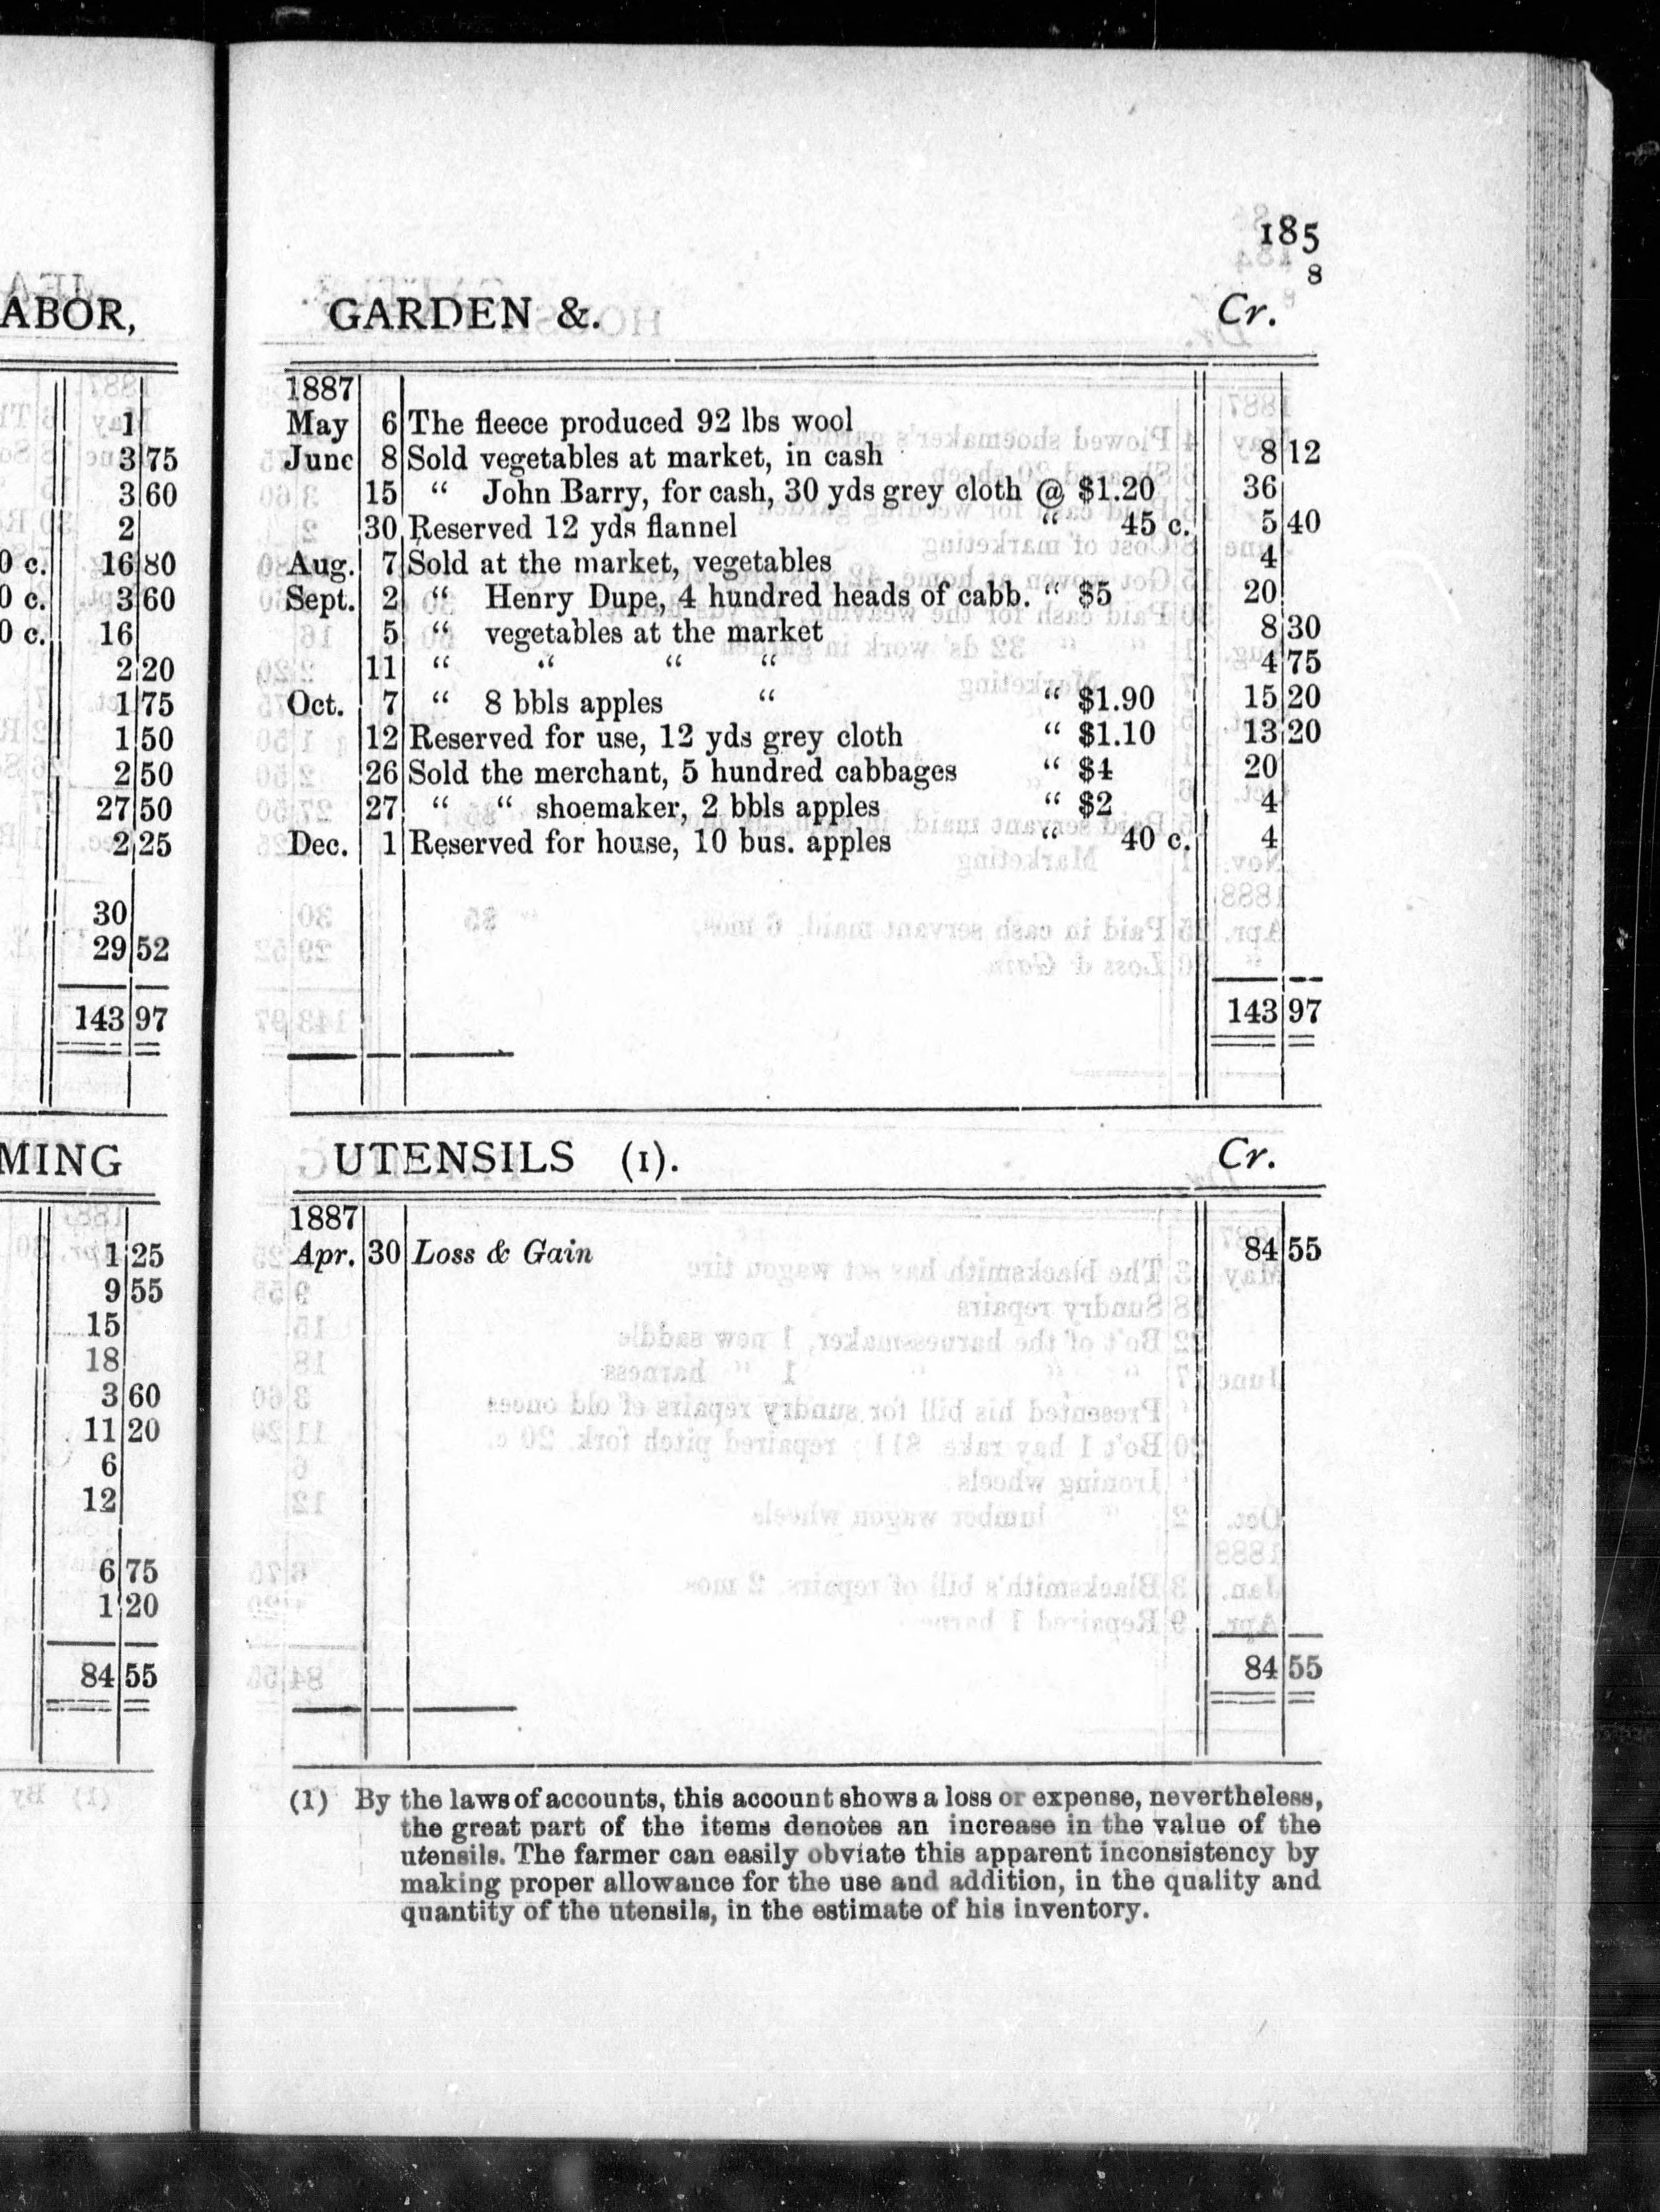 185
8
ABOR,
1
3 75
3 60
2
0 c. 16 80
0 c. 3 60
0 c. 16
2 20
1 75
1 50
2 50
27 50
2 25
30
29 52
143 97
MING
1 25
9 55
15
18
3 60
11 20
6
12
6 75
1 20
84 55
GARDEN &. Cr.
1887
May 6 The fleece produced 92 lbs wool
June 8 Sold vegetables at market, in cash 8 12
15 “ John Barry, for cash, 30 yds grey cloth @ $1.20 36
30 Reserved 12 yds flannel “ 45 c. 5 40
Aug. 7 Sold at the market, vegetables 4
Sept. 2 “ Henry Dupe, 4 hundred heads of cabb. “ $5 20
5 “ vegetables at the market 8 30
11 “ “ “ “ 4 75
Oct. 7 “ 8 bbls apples “ “ $1.90 15 20
12 Reserved for use, 12 yds grey cloth “ $1.10 13 20
26 Sold the merchant, 5 hundred cabbages “ $4 20
27 “ “ shoemaker, 2 bbls apples “ $2 4
Dec. 1 Reserved for house, 10 bus. apples “ 40 c. 4
143 97
UTENSILS (1). Cr.
1887
Apr. 30 Loss & Gain 84 55
84 55
(1) By the laws of accounts, this account shows a loss or expense, nevertheless,
the great part of the items denotes an increase in the value of the
utensils. The farmer can easily obviate this apparent inconsistency by
making proper allowance for the use and addition, in the quality and
quantity of the utensils, in the estimate of his inventory.